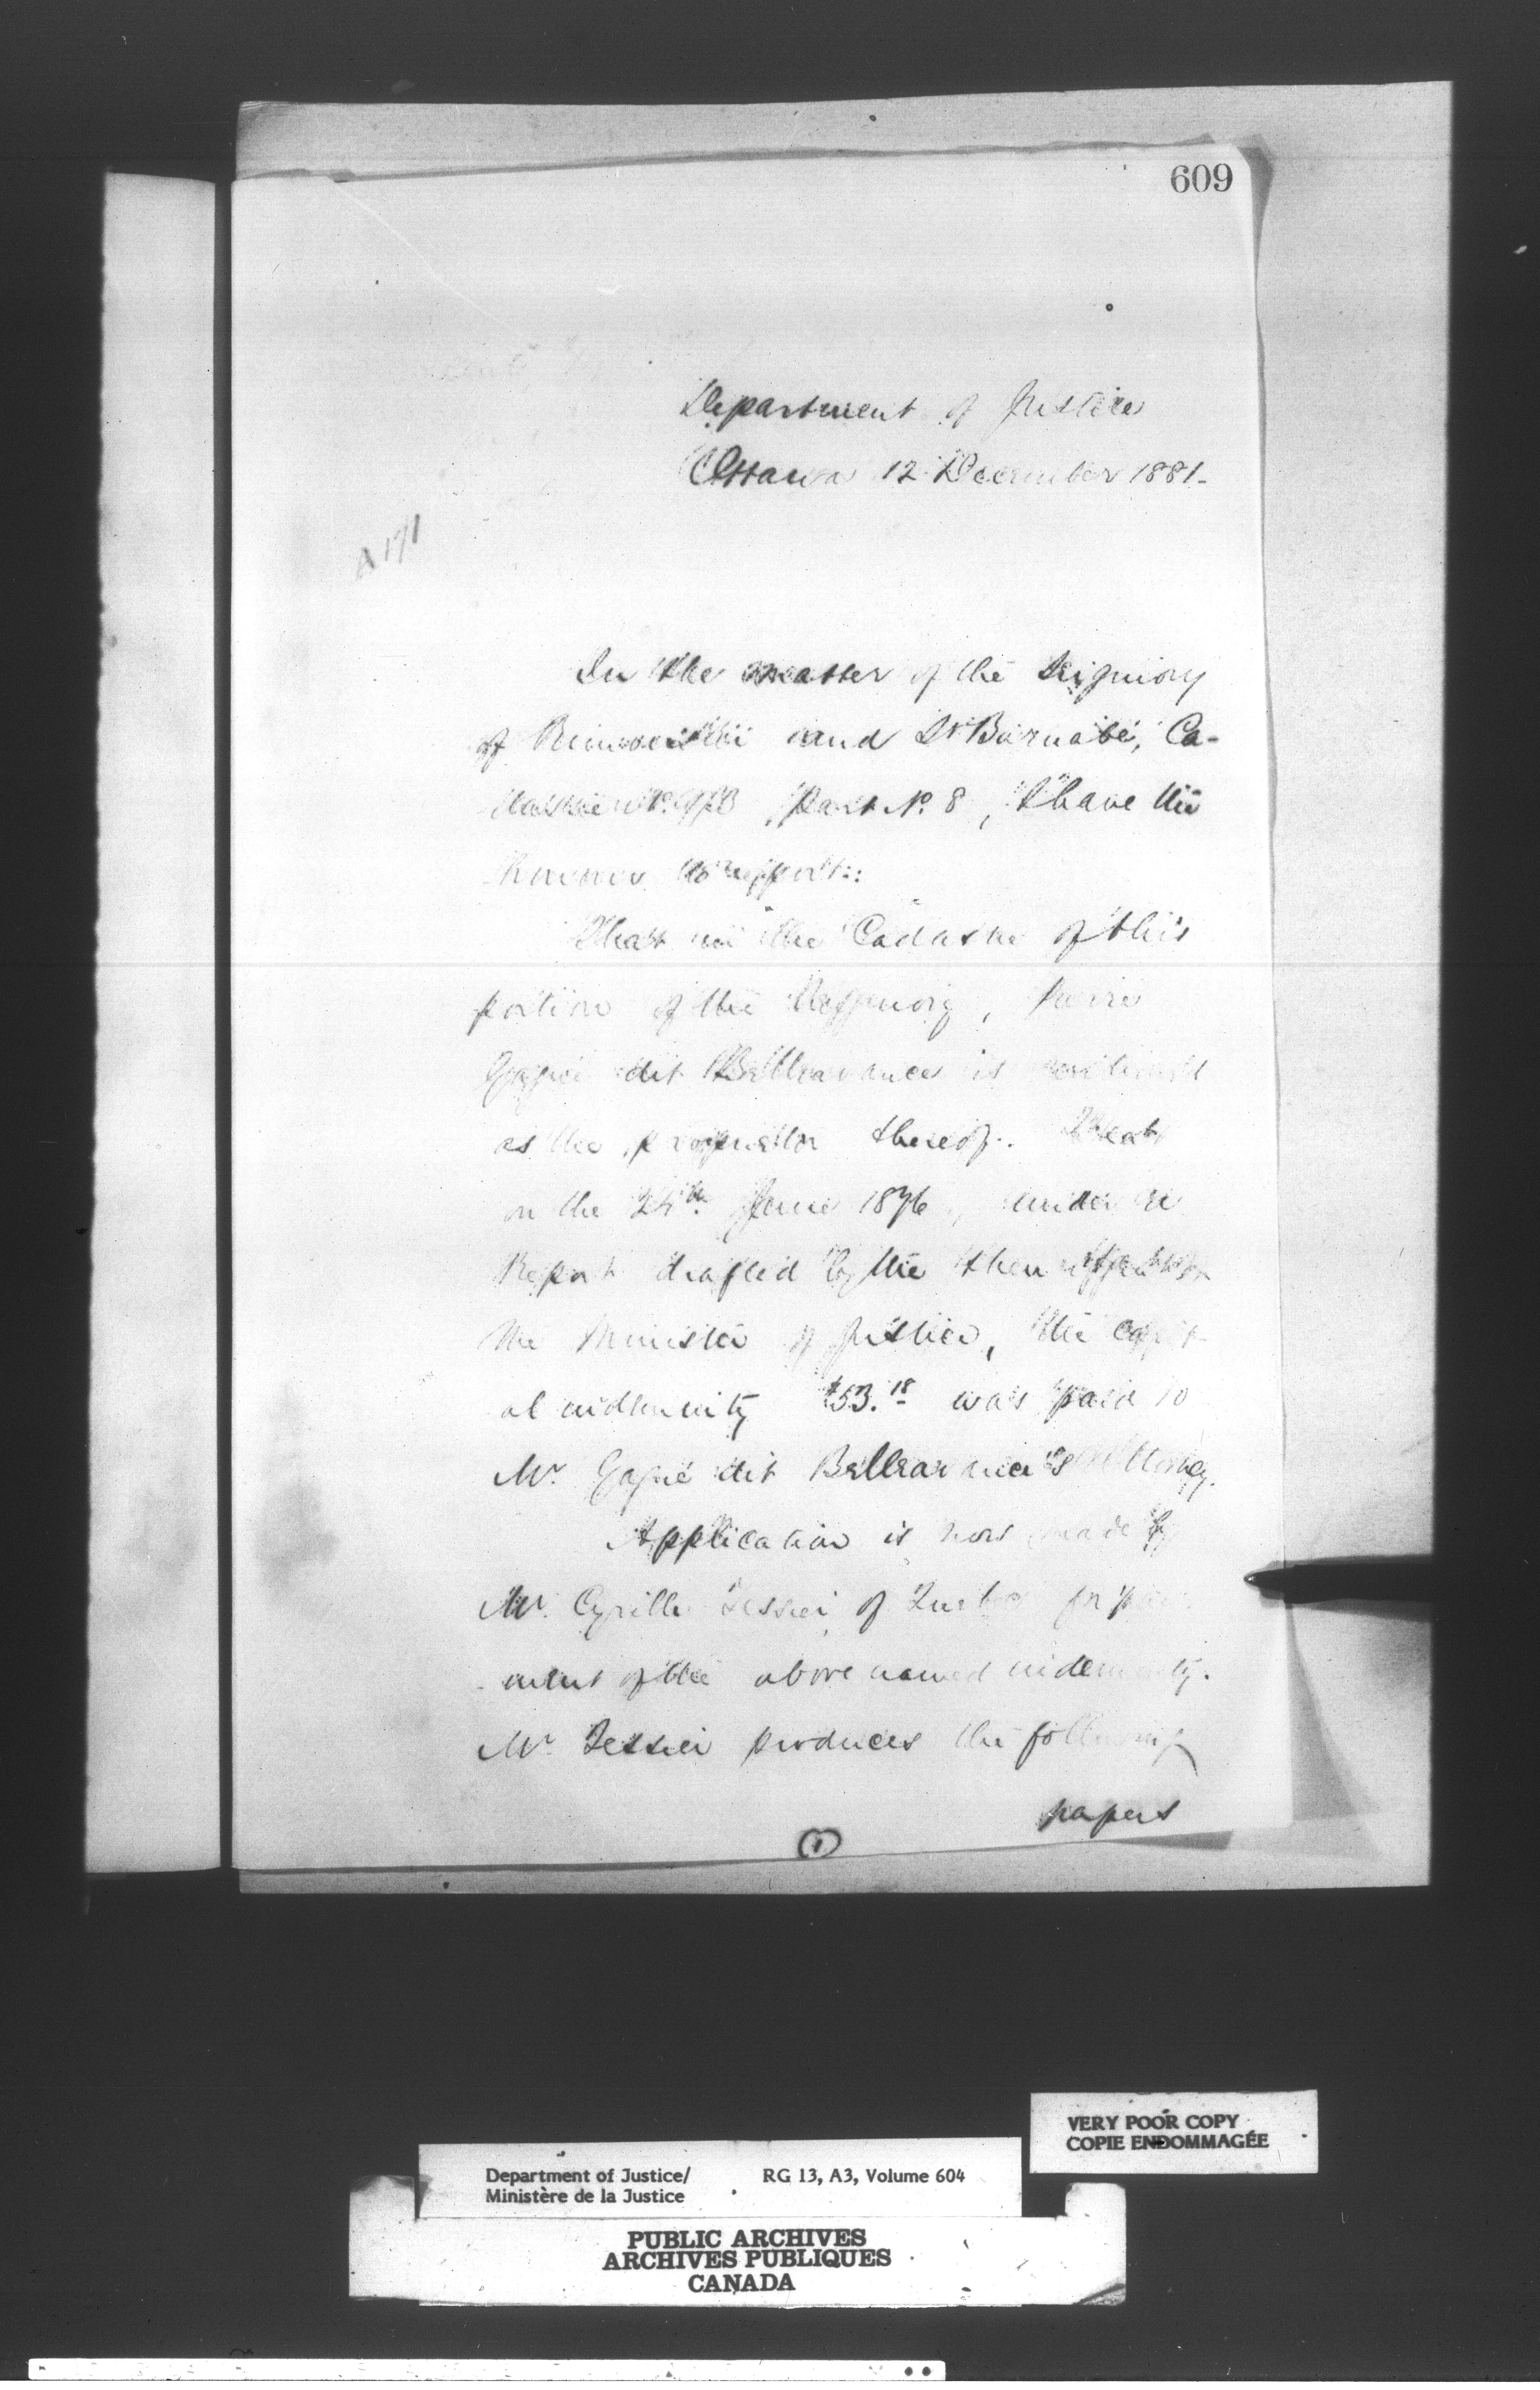 609
Department of Justice
Ottawa 12 December 1881-
A 171
In the matter of the Seigniory
of Rimouski and St Barnabé, Ca-
dastre No. , Part No. 8, I have the
honour to report:
That in the Cadastre of this
portion of the Seigniory, Pierre
Gagné dit Bellavance is
as the proprietor thereof. That
on the June 1876, under a
Report drafted by the then
the Minister of Justice, the capit-
al indemnity $53.18 was paid to
Mr. Gagné dit Bellavance's Attorney.
Application is now made by
Mr. Cyrille Tessier of Quebec for pay-
ment of the above named indemnity.
Mr. Tessier produces the following
papers
1
VERY POOR COPY
COPIE ENDOMMAGÉE
Department of Justice/ RG 13, A3, Volume 604
Ministère de la Justice
PUBLIC ARCHIVES
ARCHIVES PUBLIQUES
CANADA